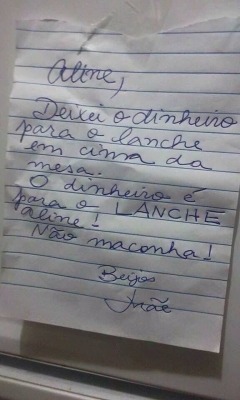 Aline,
Deixei o dinheiro
para o lanche
em cima da
mesa.
O dinheiro é
para o LANCHE
aline!
Não maconha!
Beijos
Mãe